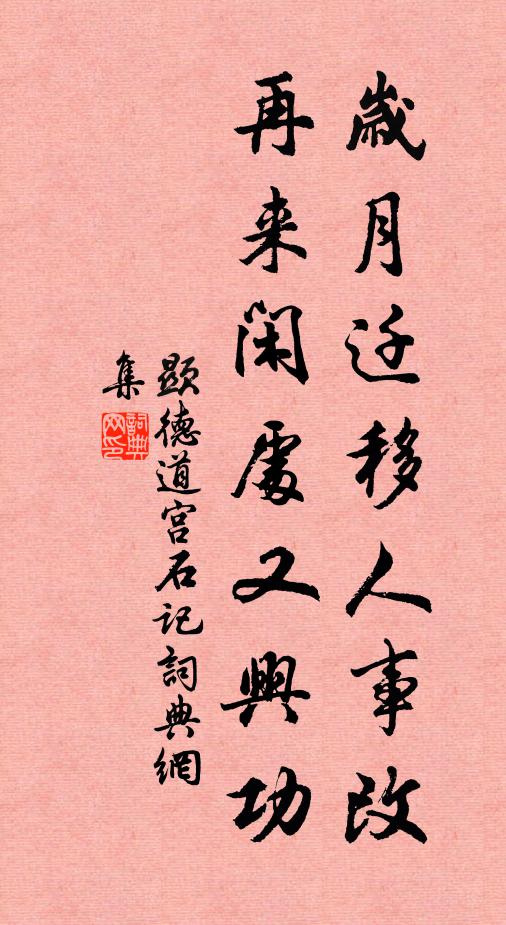 歲月迁移人事改
再来闲處又興功
顯德道宫石记詞典網
集
詞典
网印